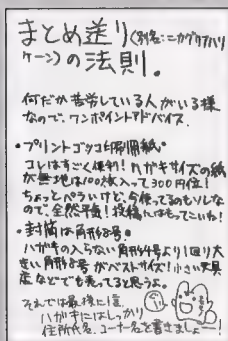 まとめ送り(別名:ニカグタハリ
ケーン)の法則。
何だか苦労している人がいる様
なので、ワンポイントアドバイス。
・プリントゴッコ印刷用紙
コレはすごく便利!ハガキサイズの紙
が無地は100枚入って300円位!
ちょっとペラいけど、今使ってるのもソレな
ので、全然平気!投稿にはもってこいね!
・封筒は角形8号。
ハガキの入らない角形4号より1回り大
きい角形8号がベストサイズ!小さい文具
店などでも売ってると思うよ。
それでは最後に一言、
ハガキにはしっかり
住所氏名、コーナー名を書きましょー!